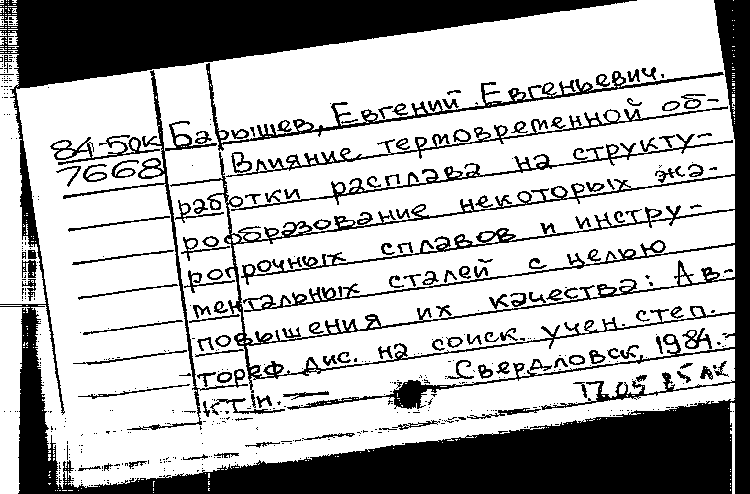 84-50к Барышев, Евгений Евгеньевич.
7668 Влияние термовременной об-
работки расплава на структу-
рообразование некоторых жа-
ропрочных сплавов и инстру-
ментальных сталей с целью
повышения их качества: Ав-
тореф. дис. на соиск. учен. степ.
к.т.н. —
Свердловск, 1984.-
17.05.85 ЛК